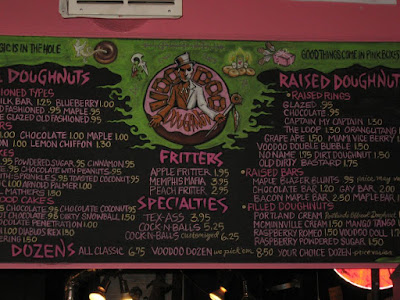 GIC IS IN THE HOLE
GOOD THINGS COME IN PINK BOXES
VOODOO
DOUGHNUT
DOUGHNUTS
IONED TYPES
ILK BAR 1.25 BLUEBERRY 1.00
FASHIONED .95 MAPLE .95
E GLAZED OLD FASHIONED .95
ERS
1.00 CHOCOLATE 1.00 MAPLE 1.00
ON 1.00 LEMON CHIFFON 1.30
KES
.95 POWDERED SUGAR .95 CINNAMON .95
ATE .95 CHOCOLATE WITH PEANUTS .95
WITH SPRINKLES .95 TOASTED COCONUT .95
1.00 ARNOLD PALMER 1.00
L MATHERS 1.50
OOD CAKES
.95 CHOCOLATE .95 CHOCOLATE COCONUT .95
CHOCOLATE .95 DIRTY SNOWBALL 1.50
LATE PENETRATION 1.00
1.00 DIABLOS REX 1.50
ERING 1.50
DOZENS ALL CLASSIC 6.75 VOODOO DOZEN we pick em 8.50 YOUR CHOICE DOZEN
FRITTERS
APPLE FRITTER 1.95
MEMPHIS MAFIA 3.95
PEACH FRITTER 2.95
SPECIALTIES
TEX-ASS 3.95
COCK-N-BALLS 5.25
COCK-N-BALLS customized 6.25
RAISED DOUGHNUT
RAISED RINGS
GLAZED .95
CHOCOLATE .95
CAPTAIN MY CAPTAIN 1.30
THE LOOP 1.30 ORANGUTANG 1
GRAPE APE 1.50 MIAMI VICE BERRY 1
VOODOO BUBBLE BUBBLE 1.50
NO NAME 1.75 DIRT DOUGHNUT 1.50
OLD DIRTY BASTARD 1.75
RAISED BARS
MAPLE BLAZER BLUNTS .95
CHOCOLATE BAR 1.20 GAY BAR 2.00
BACON MAPLE BAR 2.50 MAPLE BAR 1
FILLED DOUGHNUTS
PORTLAND CREAM
MCMINNVILLE CREAM 1.50 MANGO TANGO
RASPBERRY ROMEO 1.50 VOODOO DOLL
RASPBERRY POWDERED SUGAR 1.50